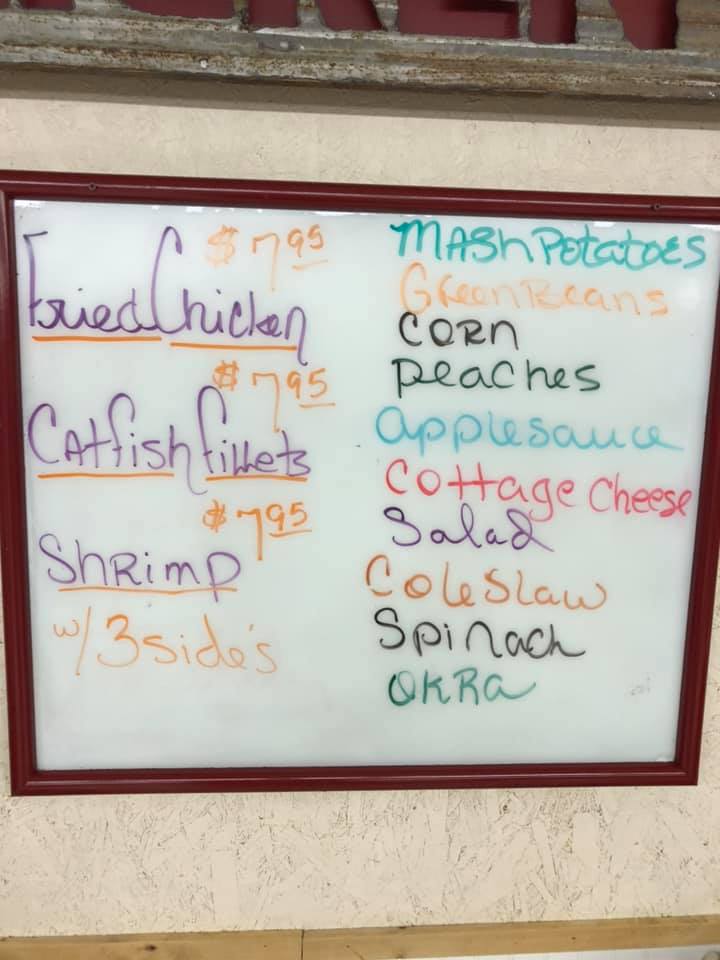 $7.95
Fried Chicken
$7.95
Catfish Fillets
$7.95
Shrimp
w/3 side's
Mash Potatoes
Green Beans
Corn
Peaches
Applesauce
Cottage Cheese
Salad
Cole Slaw
Spinach
Okra